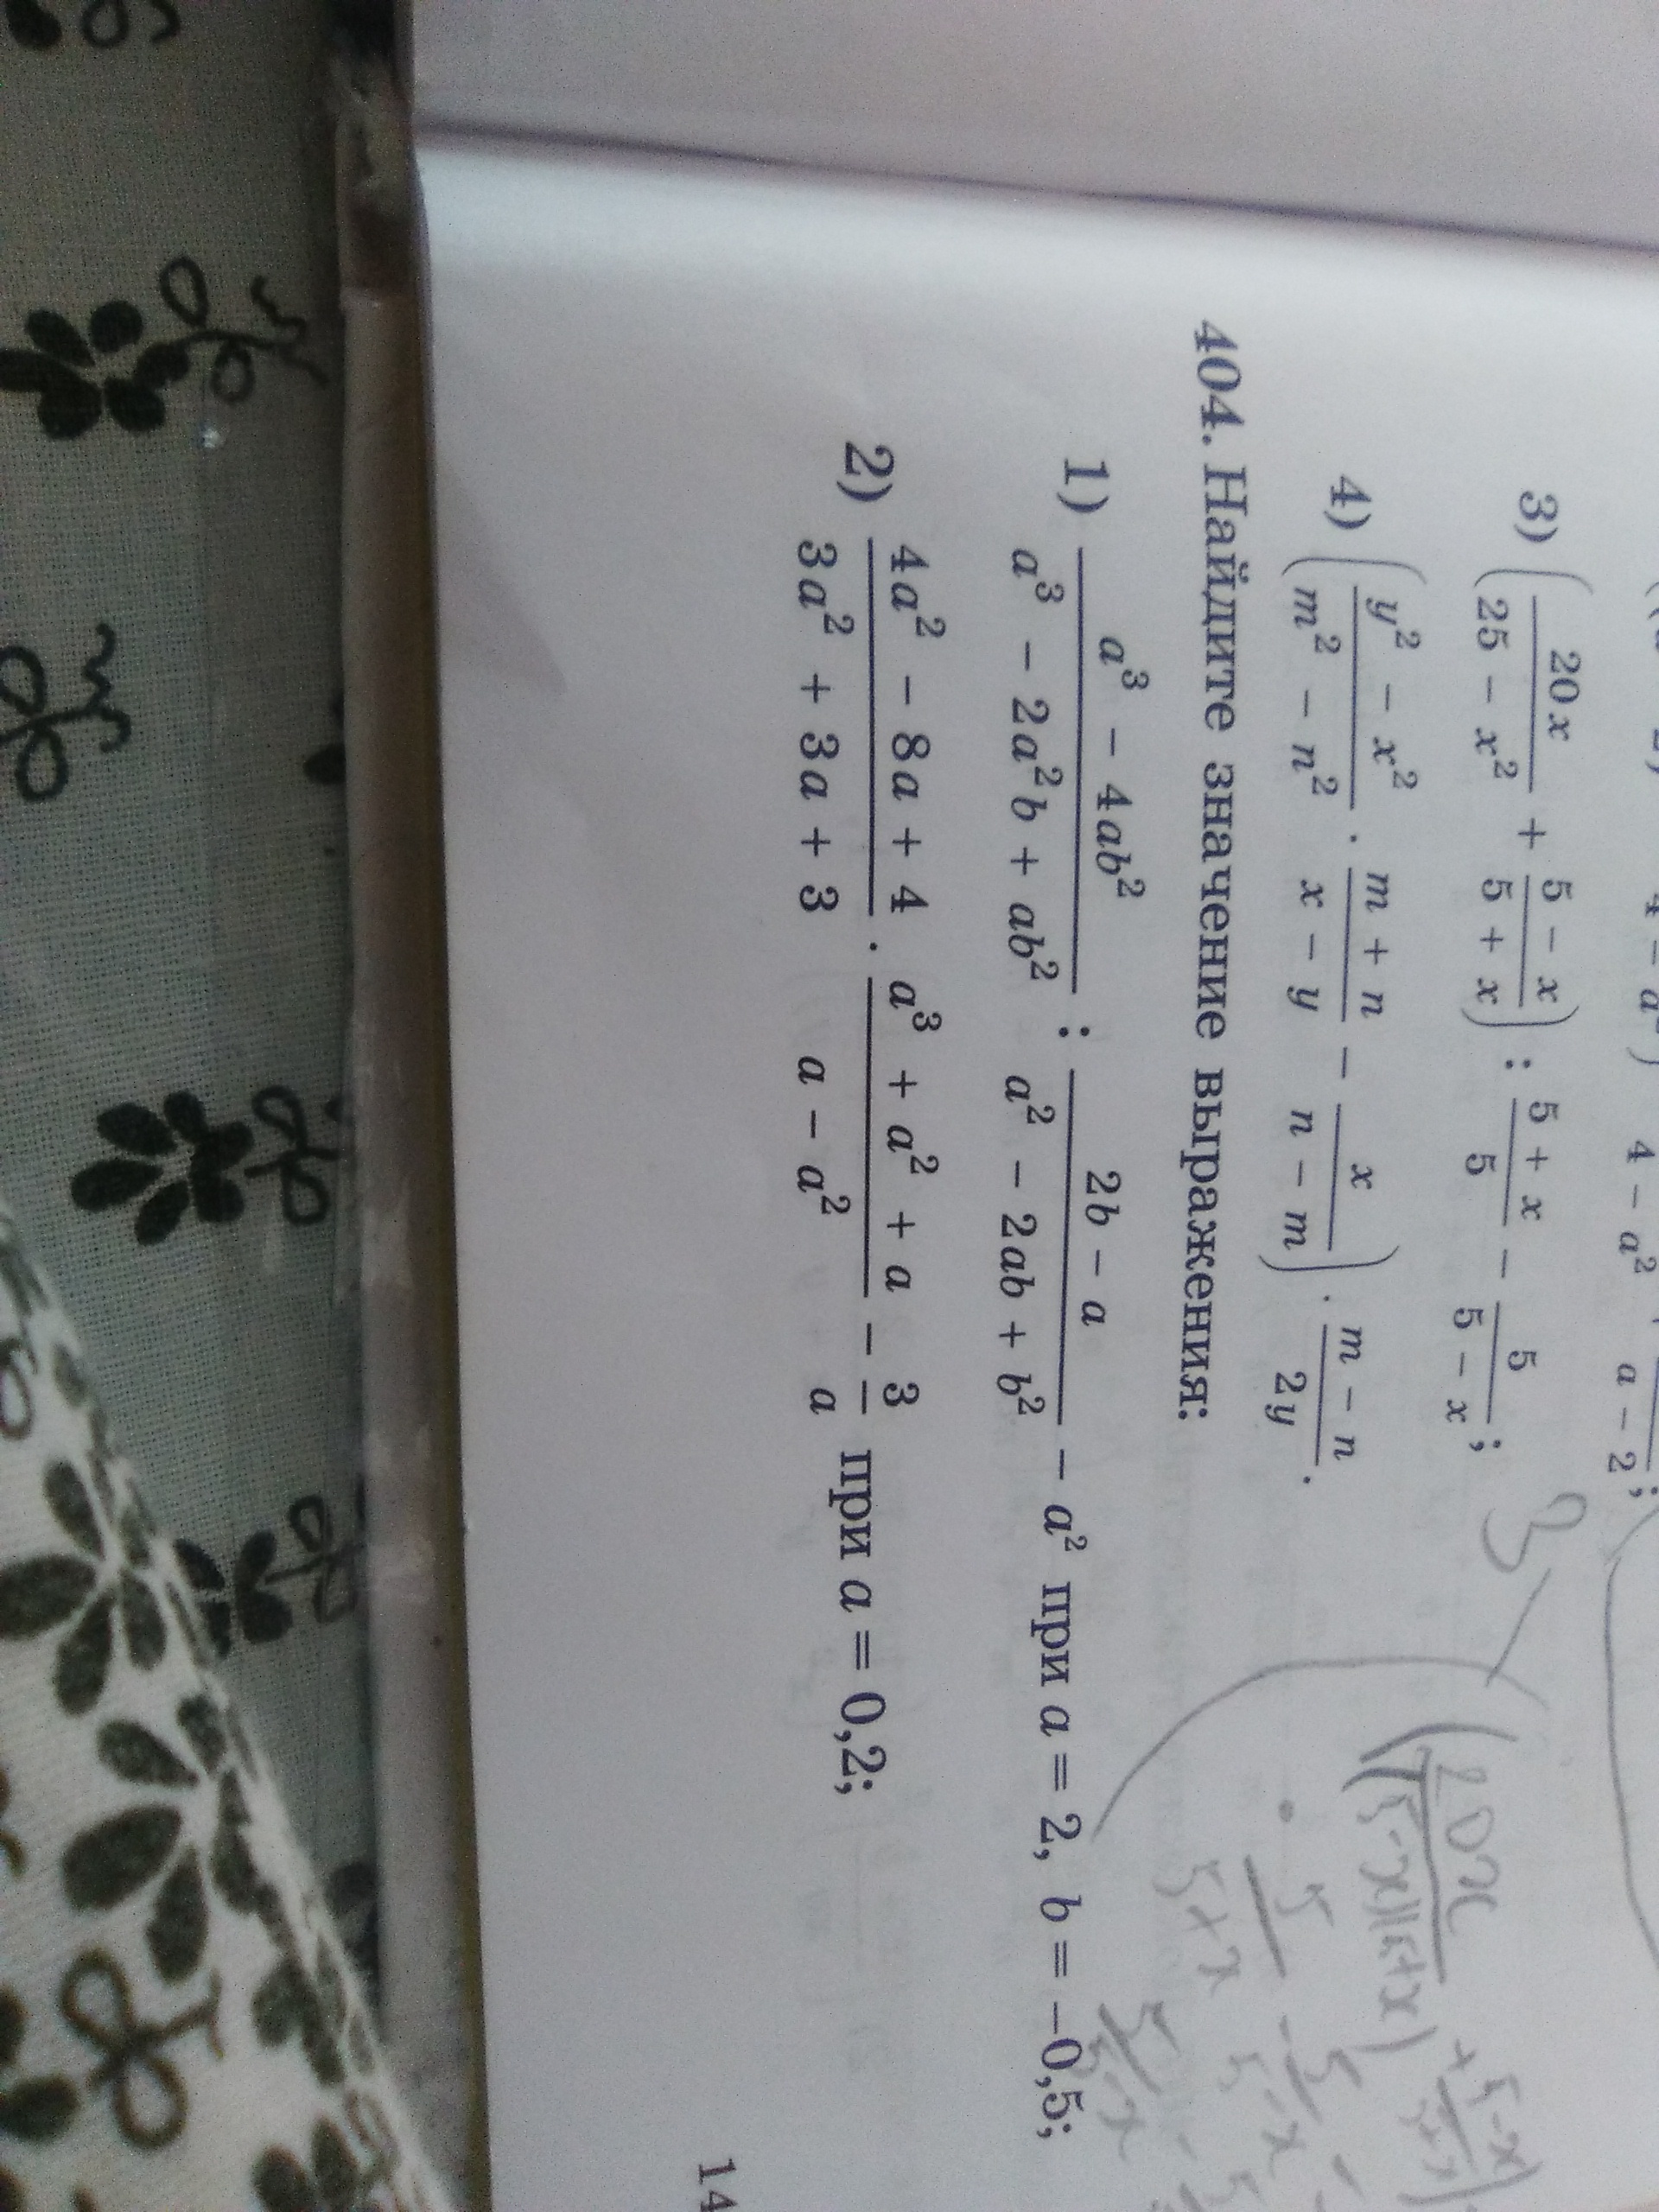 4 − a² a − 2;
3) (20x/(25 − x²) + (5 − x)/(5 + x)) : (5 + x)/5 − 5/(5 − x);
4) ((y² − x²)/(m² − n²) · (m + n)/(x − y) − x/(n − m)) · (m − n)/(2y).
404. Найдите значение выражения:
1) (a³ − 4ab²)/(a³ − 2a²b + ab²) : (2b − a)/(a² − 2ab + b²) − a² при a = 2, b = −0,5;
2) (4a² − 8a + 4)/(3a² + 3a + 3) · (a³ + a² + a)/(a − a²) − 3/a при a = 0,2;
14
3
(20x/((5−x)(5+x)) + (5−x)/(5+x)
· 5/(5+x) − 5/(5−x)
5/(5−x)